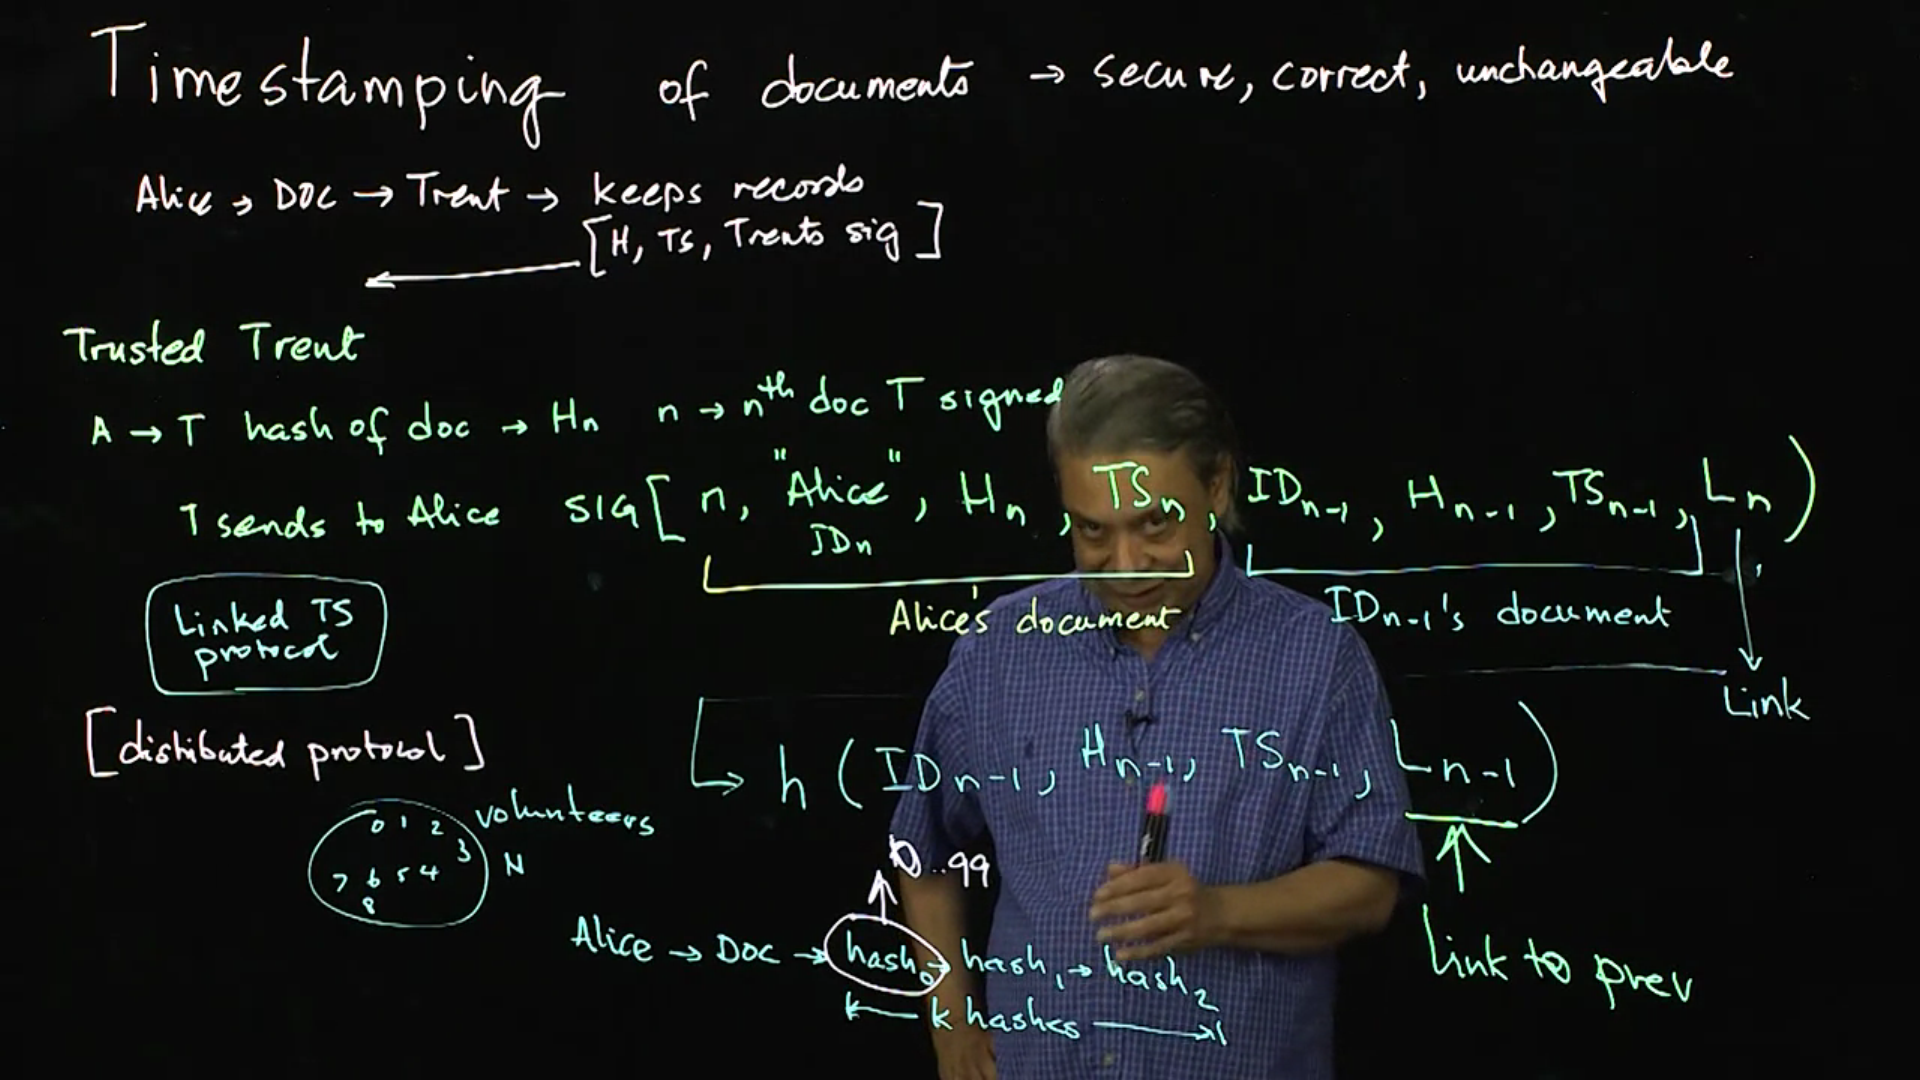 Timestamping of documents → secure, correct, unchangeable
Alice → DOC → Trent → keeps records
[H, TS, Trents sig]
Trusted Trent
A → T hash of doc → Hn n → nth doc T signed
T sends to Alice SIG[n, "Alice", Hn, TSn, IDn-1, Hn-1, TSn-1, Ln)
IDn
Alice's document IDn-1's document
Linked TS
protocol
Link
[distributed protocol]
h (IDn-1, Hn-1, TSn-1, Ln-1)
volunteers
0 1 2
3
7 6 5 4
8
N
0..99
Alice → DOC → hash0 → hash1 → hash2
k hashes
Link to prev